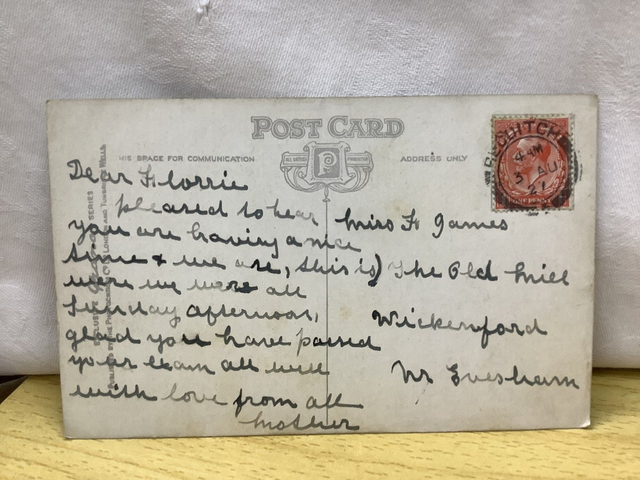 POST CARD
THIS SPACE FOR COMMUNICATION
ADDRESS ONLY
Dear Florrie
pleased to hear
you are having a nice
time & we are, this is
were we were all
Sunday afternoon,
glad you have passed
your exam all well
with love from all
Mother
Miss F James
The Old Mill
Wickenford
Nr Evesham
3 AU
21
ONE PENNY
SERIES
LONDON AND TUNBRIDGE WELLS